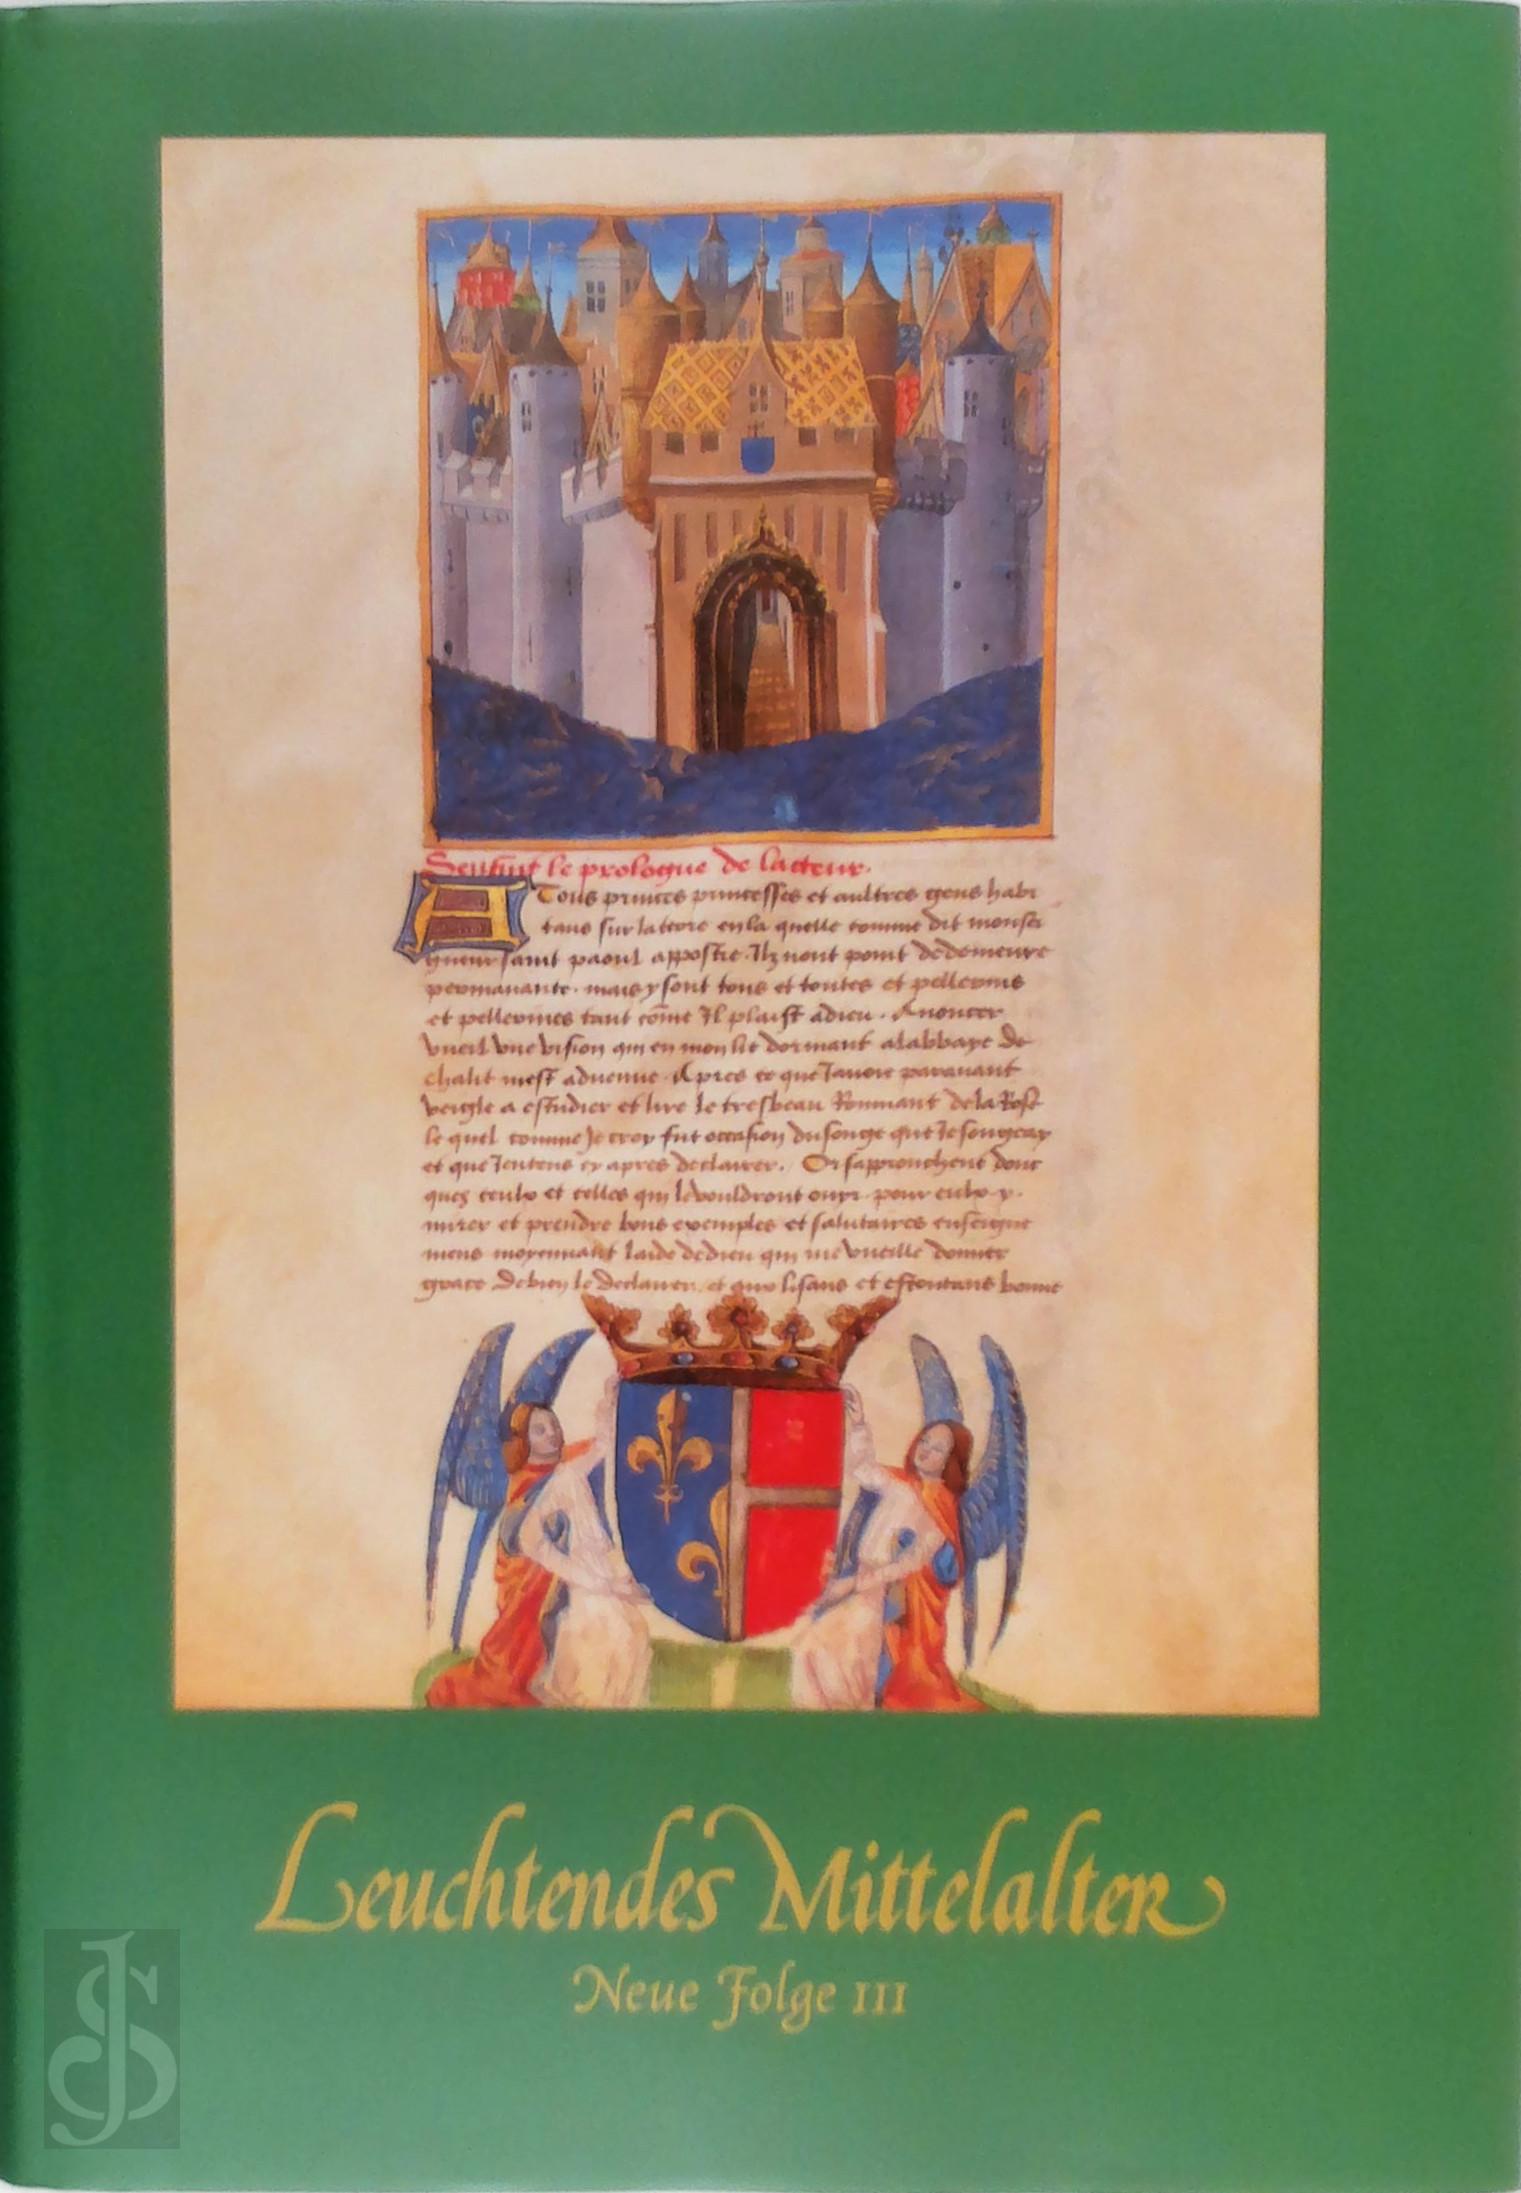 Sensuit le prologue de lacteur.
A Tous princes princesses et aultres gens habi
tans sur la terre en la quelle comme dit monsei
gneur saint paoul appostre. Ilz nont point de demeure
permanante. mais y sont tous et toutes et pellerins
et pellerines tant cōme Il plaist a dieu. Anoncer
vueil vne vision qui en mon lit dormant a labbaye de
chalit mest aduenue. Apres ce que Iauoie parauant
veigle a estudier et lire le tresbeau Rommant de la Rose
le quel comme Je croy fut occasion du songe que Je songeay
et que Ientens cy apres declairer. Or sapprouchent donc
ques ceulx et celles qui le vouldront ouyr. pour eulx y.
mirer et prendre bons exemples et salutaires enseigne
mens moyennant laide de dieu qui me vueille donner
grace de bien le declairer, et aux lisans et escoutans bonne
Leuchtendes Mittelalter
Neue Folge III
JS